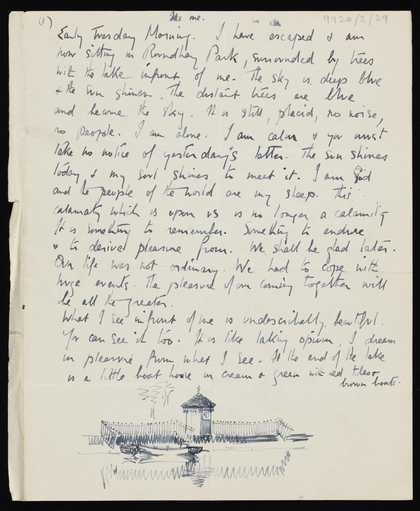 (1)
9920/2/29
Early Tuesday Morning. I have escaped & am
now sitting in Roundhay Park, surrounded by trees
with the lake infront of me. The sky is deep blue
& the sun shines. The distant trees are blue
and become the sky. It is still, placid, no noise,
no people. I am alone. I am calm & you must
take no notice of yesterday's letter. The sun shines
today, & my soul shines to meet it. I am God
and the people of the world are my sheep. This
calamity which is upon us is no longer a calamity
It is something to remember. Something to endure
& to derive pleasure from. We shall be glad later.
Our life was not ordinary. We had to cope with
huge events. The pleasure of our coming together will
be all the greater.
What I see infront of me is undescribably beautiful.
You can see it too. It is like taking opium. I dream
in pleasure from what I see. At the end of the lake
is a little boat house in cream & green
brown boats.